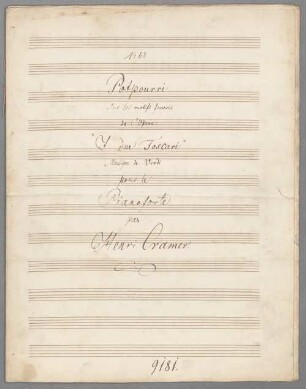 No 68
Potpourri
sur les motifs favoris
de l'Opera
"I due Foscari"
Musique de Verdi
pour le
Pianoforte
par
Henri Cramer
9181.